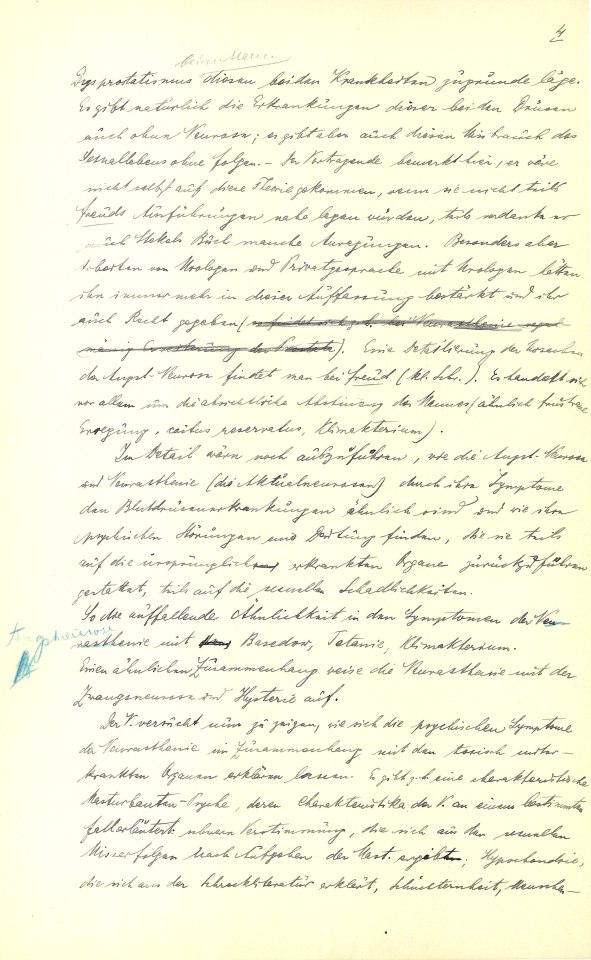 4
beim Manne
Dysprostatismus diesen beiden Krankheiten zugrunde läge.
Es gibt natürlich die Erkrankungen dieser beiden Drüsen
auch ohne Neurose; es gibt aber auch diesen Missbrauch des
Sexuallebens ohne Folgen. – Der Vortragende bemerkt hier, er wäre
nicht selbst auf diese Theorie gekommen, wenn sie nicht teils
Freuds Ausführungen nahe legen würden, teils verdanke er
auch Stekels Buch manche Anregungen. Besonders aber
Arbeiten von Urologen und Privatgespräche mit Urologen hätten
ihn immer mehr in dieser Auffassung bestärkt und ihr
auch Recht gegeben (es findet sich z. b. bei Neurasthenie regel-
mässig der Prostata). Eine Detaillierung der Ursachen
der Angst-Neurose findet man bei Freud (kl. Schr.). Es handelt sich
vor allem um die absichtliche Abstinenz des Mannes (ähnlich frustrane
Erregung, coitus reservatus, Klimakterium).
Im Detail wäre noch auszuführen, wie die Angst-Neurose
und Neurasthenie (die Aktualneurosen) durch ihre Symptome
den Blutdrüsenerkrankungen ähnlich sind und wie ihre
psychischen Störungen eine Deutung finden, die sie teils
auf die ursprünglich erkrankten Organe zurückzuführen
gestattet, teils auf die sexuellen Schädlichkeiten.
So die auffallende Ähnlichkeit in den Symptomen der Neu-
Angstneurose
rasthenie mit Basedow, Tetanie, Klimakterium.
Einen ähnlichen Zusammenhang weise die Neurasthenie mit der
Zwangsneurose und Hysterie auf.
Der V. versucht nun zu zeigen, wie sich die psychischen Symptome
der Neurasthenie im Zusammenhang mit den toxisch miter-
krankten Organen erklären lassen. Es gibt z. b. eine charakteristische
Masturbanten-Psyche, deren Charakteristika der V. an einem bestimmten
Fall erläutert: Verstimmung, die sich aus den sexuellen
Misserfolgen nach Aufgeben der Mast. ergibt; Hypochondrie,
die sich aus der Schreckliteratur erklärt, Schüchternheit, Menschen-